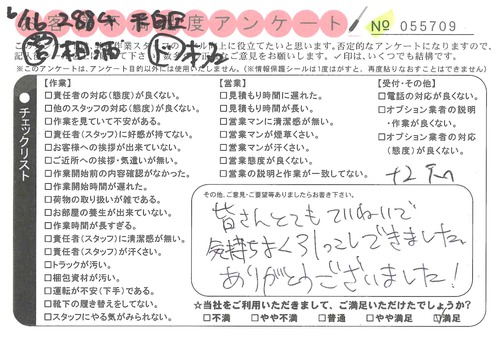 6/16 2884
お客様満足度アンケート No 055709
営 相浦
※このアンケートは、アンケート目的以外には使用いたしません。(※情報保護シールは1度はがすと、再度貼りなおすことはできません)
チェックリスト
【作業】
□責任者の対応(態度)が良くない。
□他のスタッフの対応(態度)が良くない。
□作業を見ていて不安がある。
□責任者(スタッフ)に好感が持てない。
□お客様への挨拶が出来ていない。
□ご近所への挨拶・気遣いが無い。
□作業開始前の内容確認がなかった。
□作業開始時間が遅れた。
□荷物の取り扱いが雑である。
□お部屋の養生が出来ていない。
□作業時間が長すぎる。
□責任者(スタッフ)に清潔感が無い。
□責任者(スタッフ)が汗くさい。
□トラックが汚い。
□梱包資材が汚い。
□運転が不安(下手)である。
□靴下の履き替えをしてない。
□スタッフにやる気がみられない。
【営業】
□見積もり時間に遅れた。
□見積もり時間が長い。
□営業マンに清潔感が無い。
□営業マンが煙草くさい。
□営業マンが汗くさい。
□営業態度が良くない。
□営業の説明と作業が一致してない。
【受付・その他】
□電話の対応が良くない。
□オプション業者の説明
・作業が良くない。
□オプション業者の対応
(態度)が良くない。
その他、ご意見・ご要望等ありましたらお書き下さい。
皆さんとてもていねいで
気持ちよく引っこしできました。
ありがとうございました!
☆当社をご利用いただきまして、ご満足いただけたでしょうか?
□不満 □やや不満 □普通 □やや満足 ☑満足